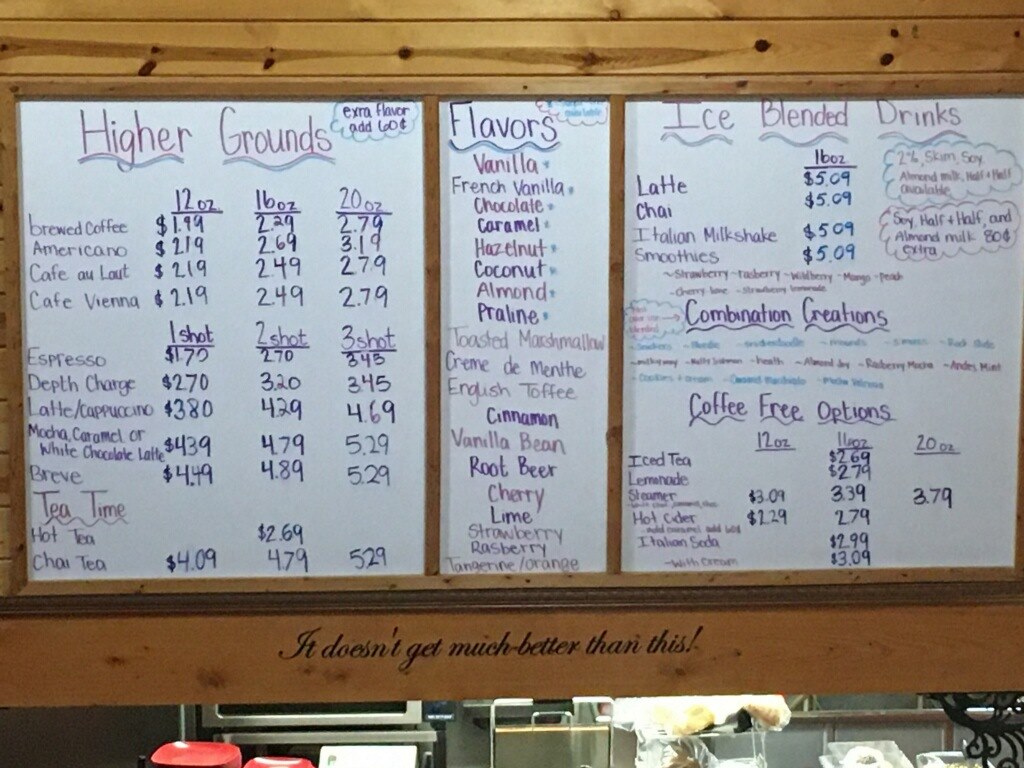 Higher Grounds
exra flavor
add 60¢
12oz 16oz 20oz
brewed Coffee $1.99 2.29 2.79
Americano $2.19 2.69 3.19
Cafe au Lait $2.19 2.49 2.79
Cafe Vienna $2.19 2.49 2.79
1shot 2shot 3shot
Espresso 2.70 3.45
Depth Charge $2.70 3.20 3.45
Latte/cappuccino $3.80 4.29 4.69
Mocha, Caramel or
White Chocolate Latte $4.39 4.79 5.29
Breve $4.49 4.89 5.29
Tea Time
Hot Tea $2.69
Chai Tea $4.09 4.79 5.29
Flavors
Vanilla
French Vanilla
Chocolate
Caramel
Hazelnut
Coconut
Almond
Praline
Toasted Marshmallow
Creme de Menthe
English Toffee
Cinnamon
Vanilla Bean
Root Beer
Cherry
Lime
Strawberry
Rasberry
Tangerine/orange
Ice Blended Drinks
16oz
Latte $5.09
Chai $5.09
Italian Milkshake $5.09
Smoothies $5.09
~Strawberry -rasberry -Wildberry -Mango -peach
-Cherry lime -Strawberry lemonade
2%, Skim, Soy,
Almond milk, Half + Half
available
Soy, Half + Half, and
Almond milk 80¢
extra
Combination Creations
-Almond Joy -Rasberry Mocha -Andes Mint
Coffee Free Options
12oz 16oz 20oz
Iced Tea $2.69
Lemonade $2.79
Steamer $3.09 3.39 3.79
Hot Cider $2.29 2.79
-Add caramel add 60¢
Italian Soda $2.99
-With Cream $3.09
It doesn't get much better than this!